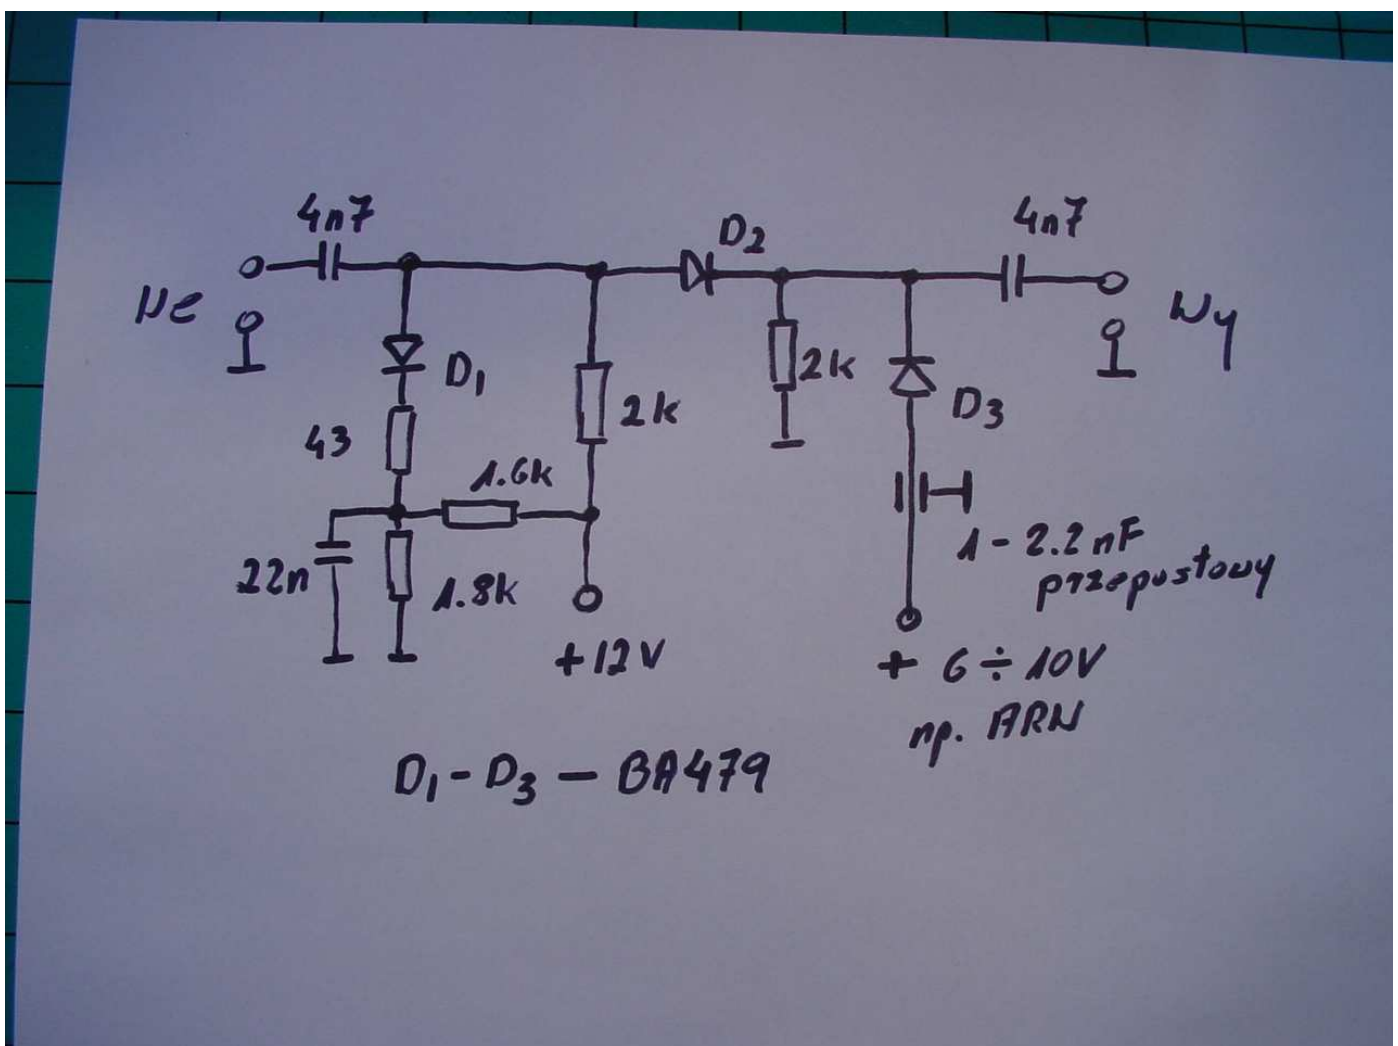 4n7
D2
4n7
We
Wy
D1
2k
D3
43
2k
1.6k
22n
1.8k
1 - 2.2 nF
przepustowy
+12V
+ 6 ÷ 10V
np. ARW
D1 - D3 — BA479